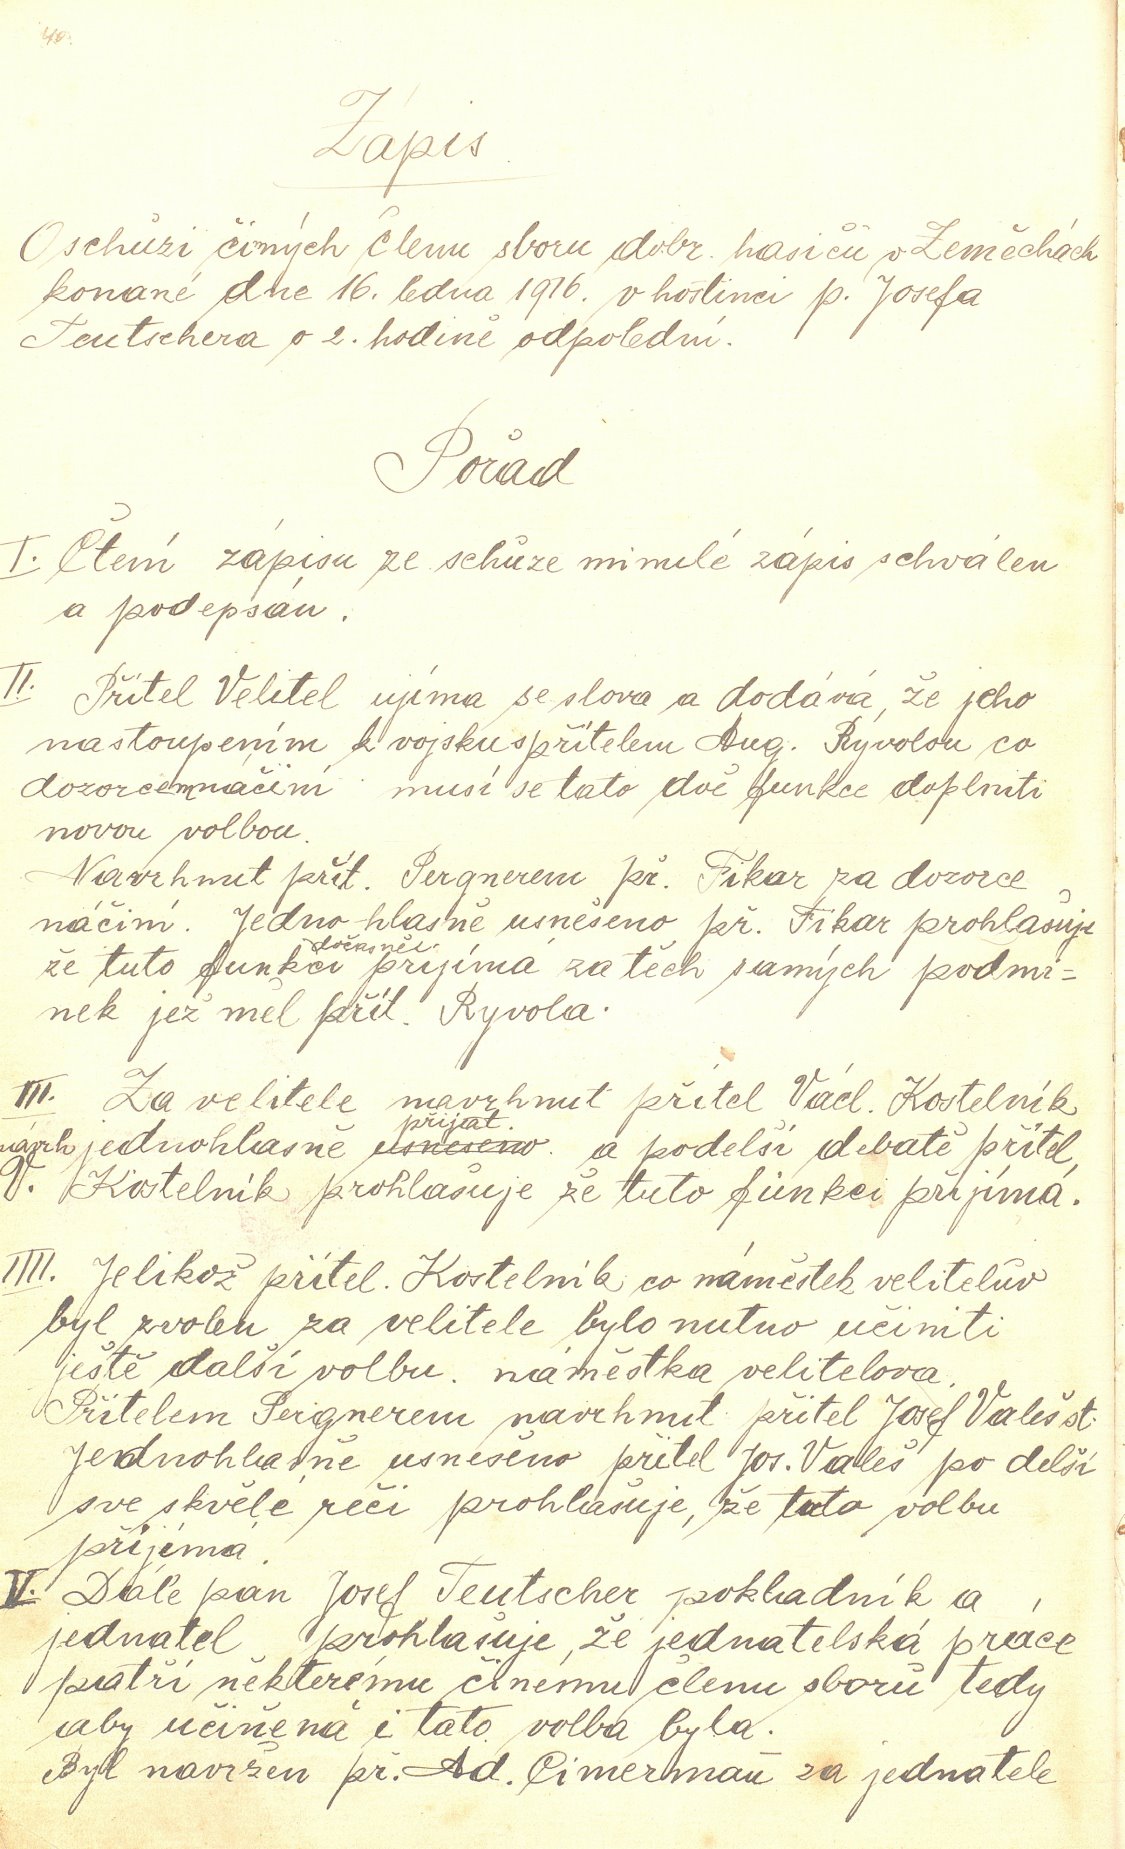 40.
Zápis
O schůzi činých členu sboru dobr. hasičů v Zeměchách
konané dne 16. ledna 1916. v hostinci p. Josefa
Teutschera o 2. hodině odpolední.
Pořad
I. Čtení zápisu ze schůze minulé zápis schválen
a podepsán.
II. Přítel Velitel ujíma se slova a dodává, že jeho
nastoupením k vojsku s přítelem Aug. Ryvolou co
dozorcem načiní musí se tato dvě funkce doplniti
novou volbou.
Navrhnut přít. Pergnerem př. Fikar za dozorce
náčiní. Jedno-hlasně usnešeno př. Fikar prohlašuje
dočasněi.
že tuto funkci přijímá za těch samých podmí=
nek jež měl přít. Ryvola.
III. Za velitele navrhnut přítel Václ. Kostelník
přijat.
návrh jednohlasně usneseno. a podelší debatě přítel
V. Kostelník prohlašuje že tuto funkci přijímá.
IIII. Jelikož přítel. Kostelník co náměstek velitelův
byl zvolen za velitele bylo nutno učiniti
ještě další volbu. náměstka velitelova.
Přítelem Pergnerem navrhnut přítel Josef Valeš st.
Jednohlasně usnešeno přítel Jos. Valeš po delší
sve skvělé řeči prohlašuje, že tuto volbu
příjímá.
V. Dále pan Josef Teutscher pokladník a
jednatel prohlašuje, že jednatelská práce
patří některému činému členu sborů tedy
aby učiněna i tato volba byla.
Byl navržen př. Ad. Cimerman za jednatele